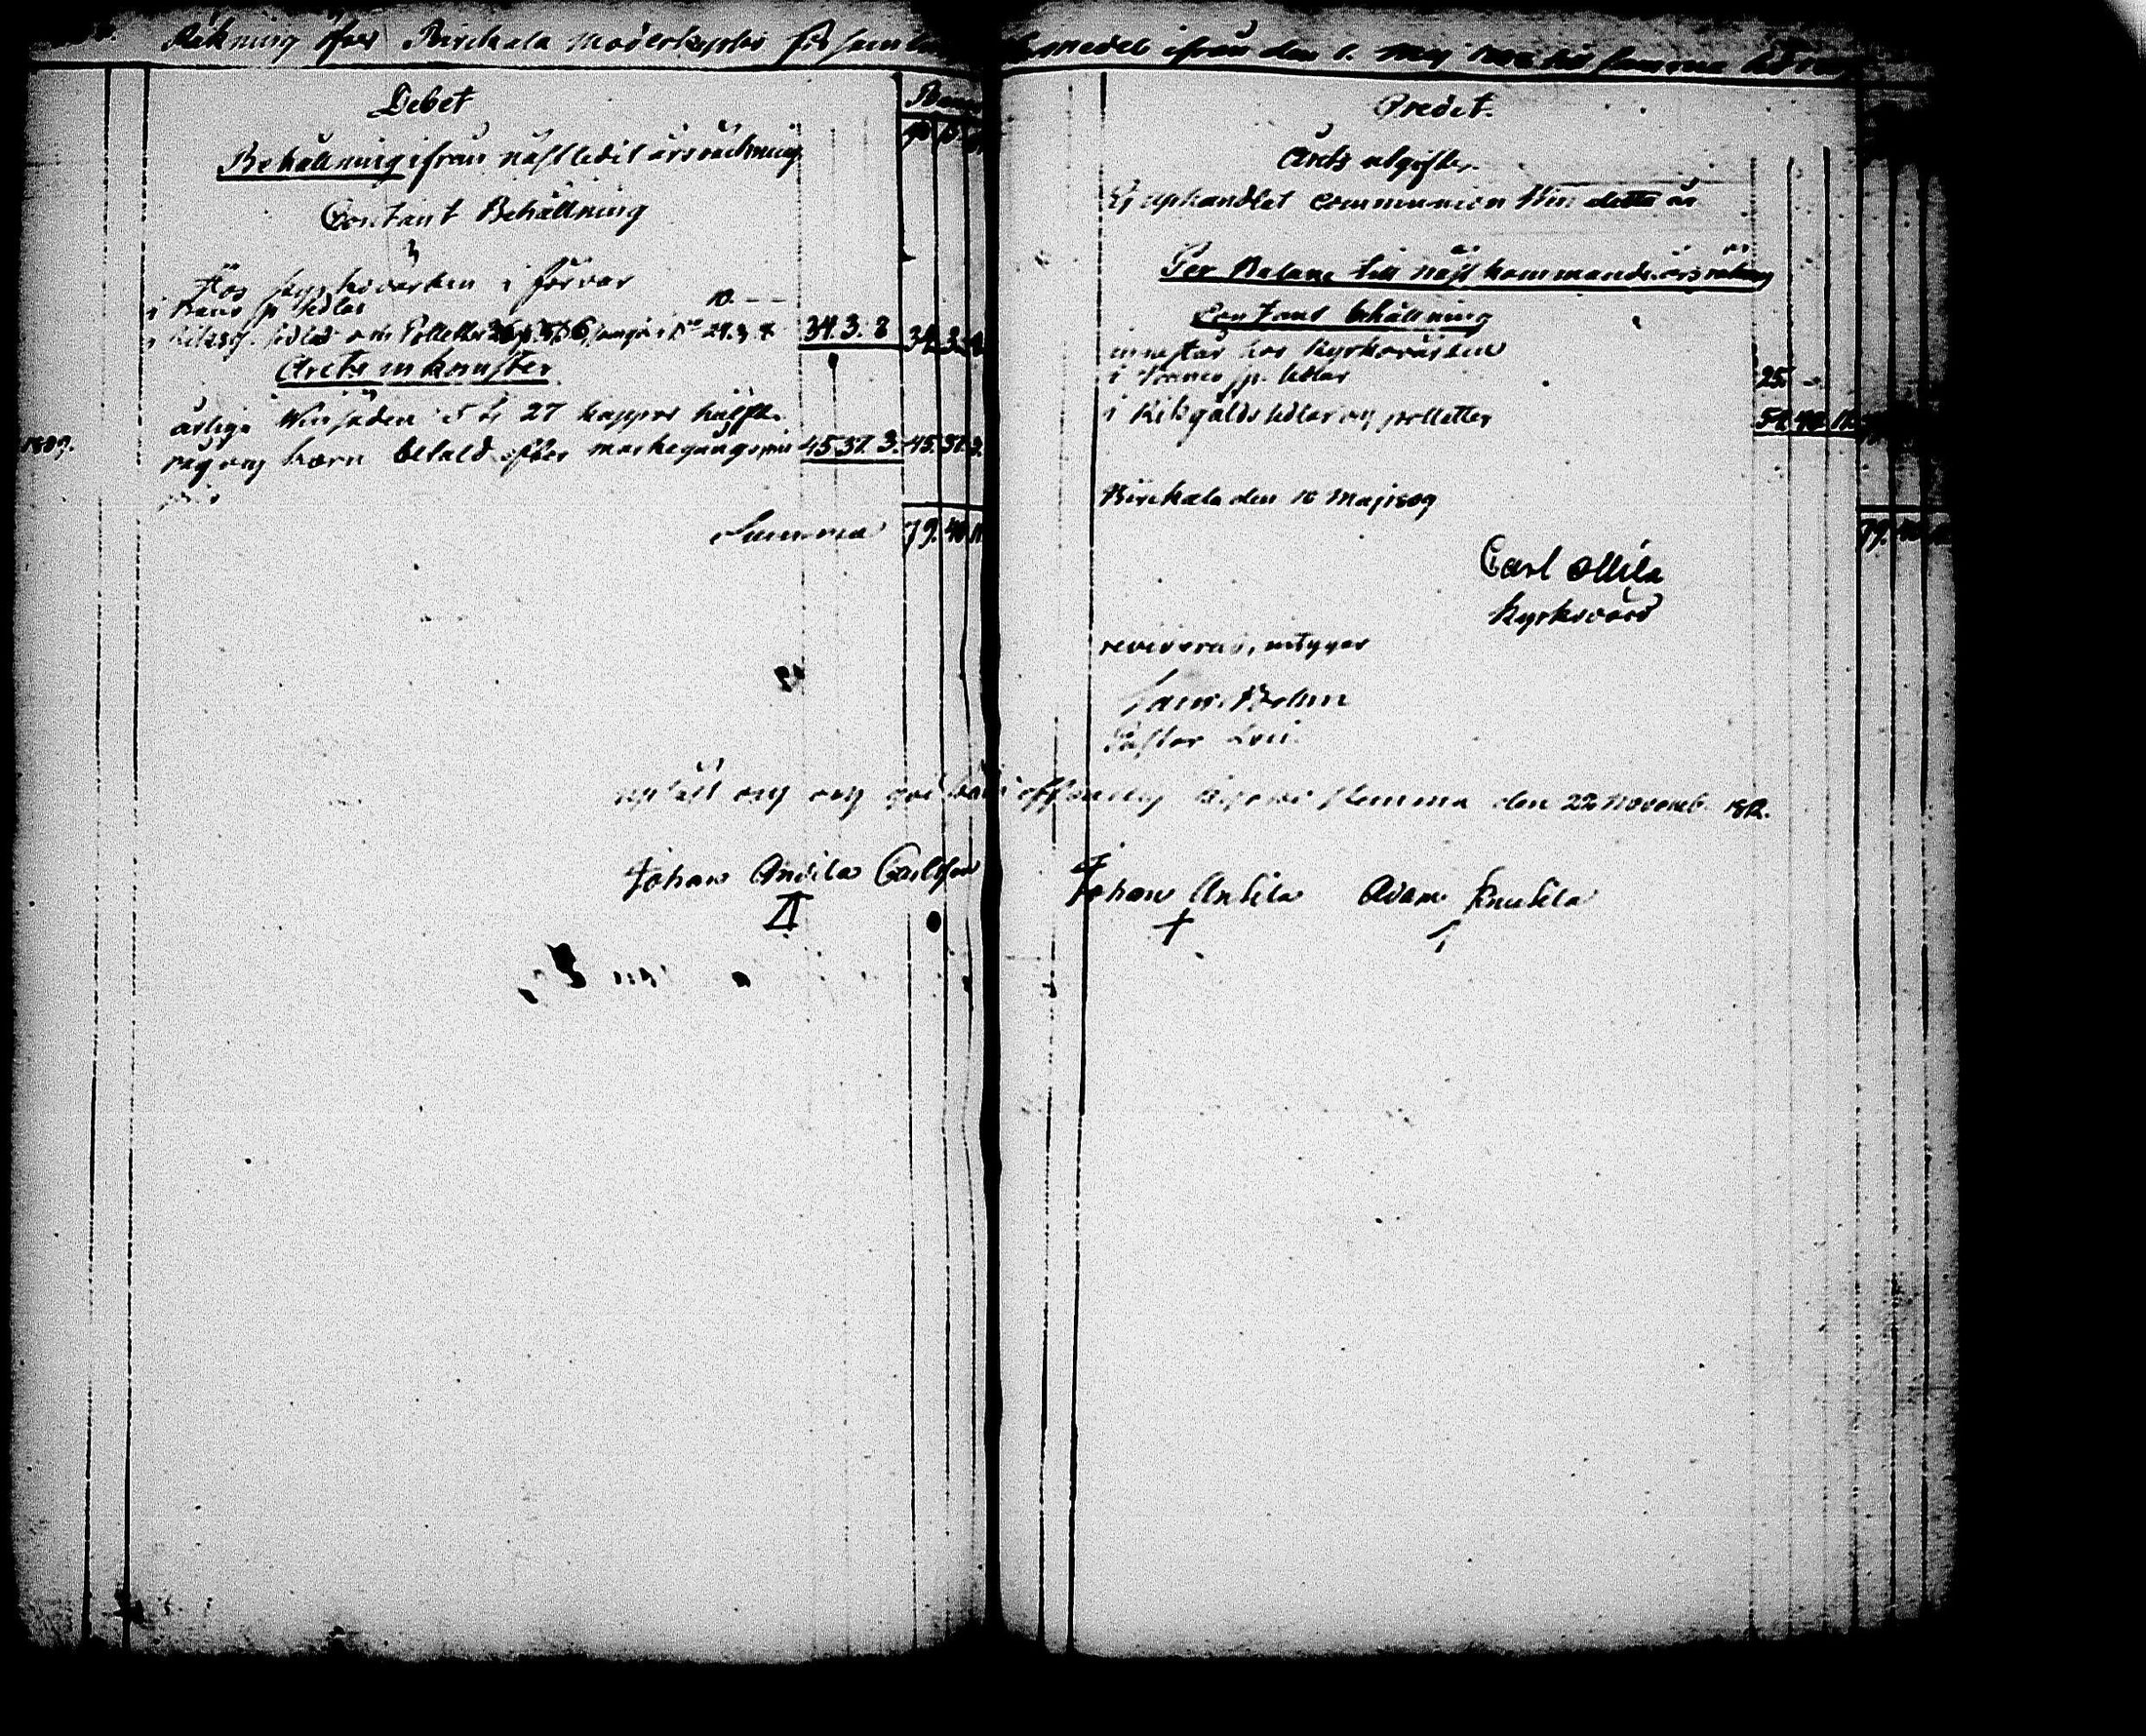 Räkning öfver Birckala Moderkyrko församlings medel ifrån den 1. Maj till samma tid
Debet
Banco
Behållning ifrån nästledit års räkning
Contant Behållning
Hos kyrkovärden i förvar
i Banco sp. sedlar 10 - -
i Riksg. sedlar och Polletter 24.3.8 34.3.8 34.3.8
Årets inkomster
årlige Winsäden 27 kappar hälften
1809. råg och korn betald efter markegångspris 45.37.3. 45.37.3.
Summa 79.40.11
Credit.
Årets utgifter.
Ej uphandlat Communion Win detta år
Per Balance till nästkommande års räkning
Contant behållning
innestår hos Kyrkovärden
i Banco sp. sedlar 25. -
i Riksgälds sedlar och polletter 54.40.11.
Birckala den 10 Maji 1809
79.40.11
Carl Ollila
Kyrkovärd
revideradt, intygar
Past. Loci
upläst och och allmän Sockne stemma den 22 Novemb. 1812.
Johan Anttila Carlsson Johan Anttila Adam Knutila